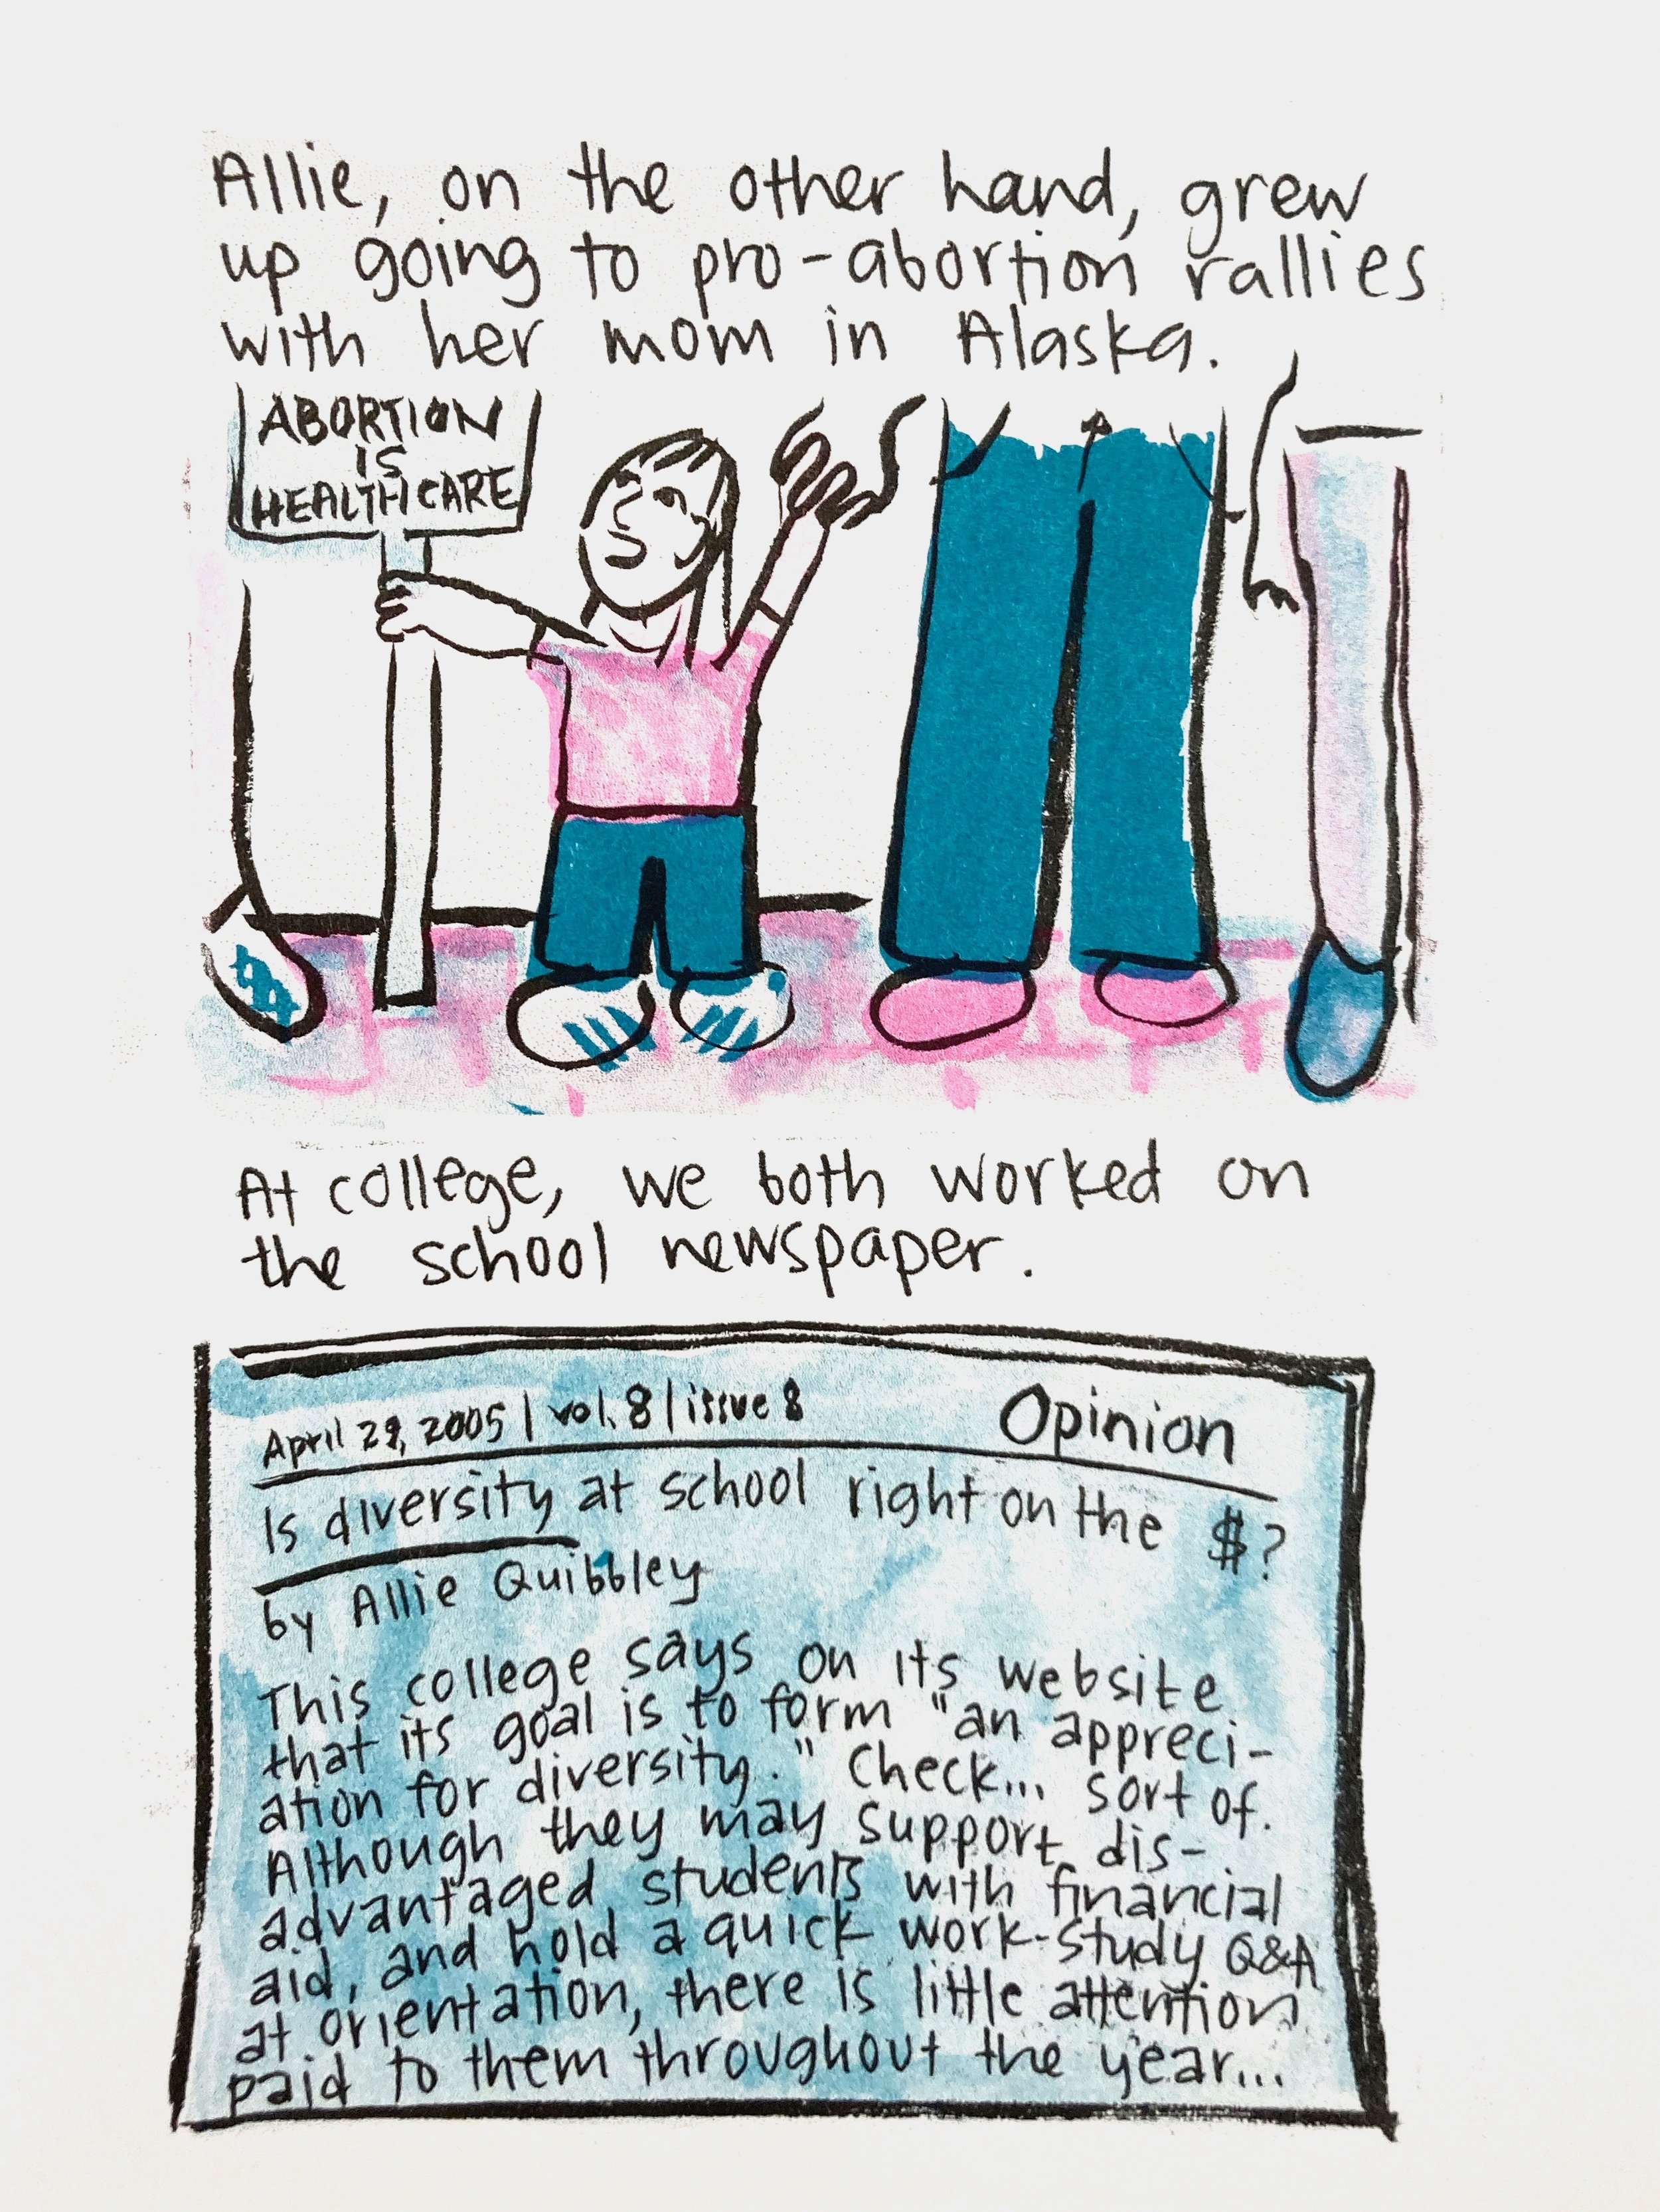 Allie, on the other hand, grew
up going to pro-abortion rallies
with her mom in Alaska.
ABORTION
IS
HEALTHCARE
At college, we both worked on
the school newspaper.
April 29, 2005 | vol. 8 | issue 8
Opinion
Is diversity at school right on the $?
by Allie Quibbley
This college says on its website
that its goal is to form "an appreci-
ation for diversity." Check... sort of.
Although they may support dis-
advantaged students with financial
aid, and hold a quick work-study Q&A
at orientation, there is little attention
paid to them throughout the year...